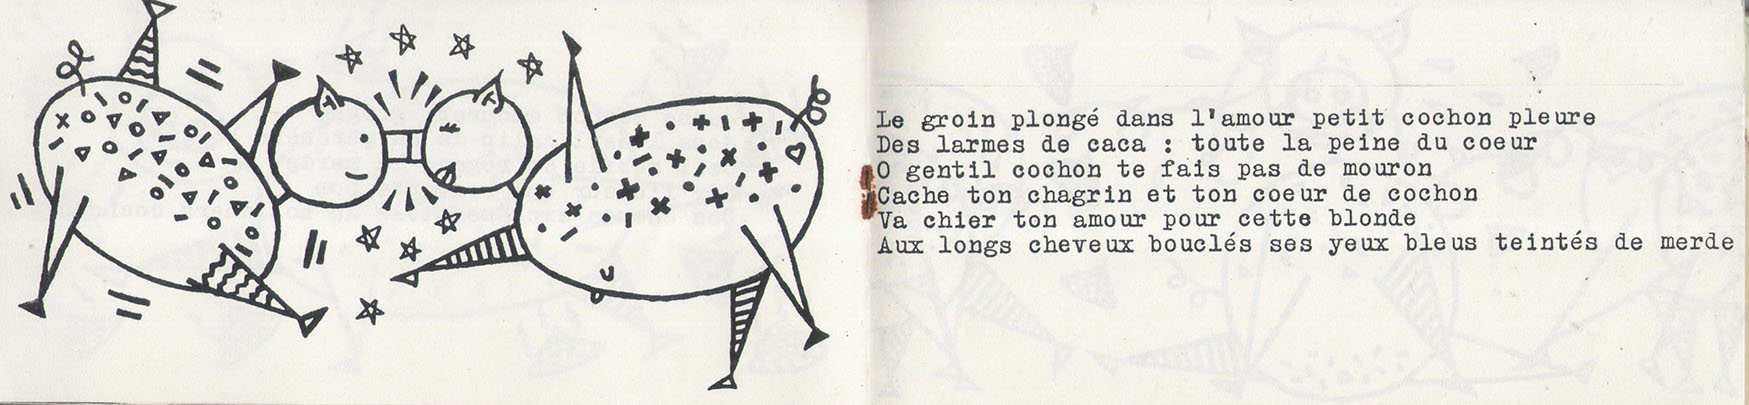 Le groin plongé dans l'amour petit cochon pleure
Des larmes de caca : toute la peine du coeur
O gentil cochon te fais pas de mouron
Cache ton chagrin et ton coeur de cochon
Va chier ton amour pour cette blonde
Aux longs cheveux bouclés ses yeux bleus teintés de merde